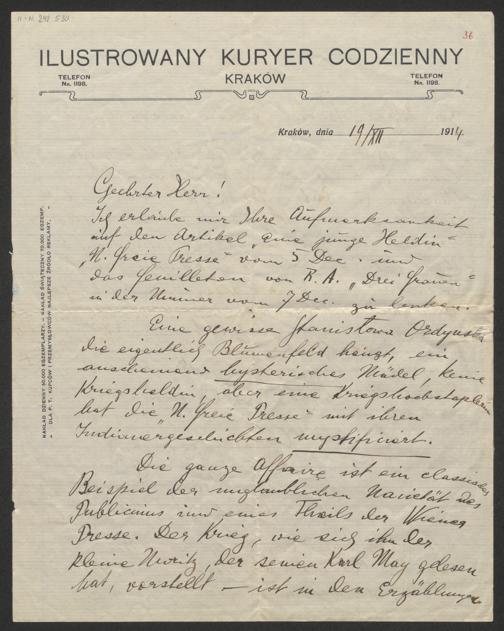 36
ILUSTROWANY KURYER CODZIENNY
KRAKÓW
TELEFON
Nr. 1198.
TELEFON
Nr. 1198.
Kraków, dnia 19/XII 1914.
Geehrter Herr!
Ich erlaube mir Ihre Aufmerksamkeit
auf den Artikel „Eine junge Heldin"
„N. freie Presse" vom 5 Dec. und
das Feuilleton von R. A. „Drei Frauen"
in der Nummer vom 7 Dec. zu lenken.
Eine gewisse Stanisłowa Ordyńska
die eigentlich Blumenfeld heisst, ein
anscheinend hysterisches Mädel, keine
Kriegsheldin, aber eine Kriegshochstaplerin
hat die „N. freie Presse" mit ihren
Indianergeschichten mystifiziert.
Die ganze Affaire ist ein classisches
Beispiel der unglaublichen Naivität des
Publicums und eines Theils der Wiener
Presse. Der Krieg, wie sich ihn der
kleine Moritz, der seinen Karl May gelesen
hat, vorstellt – ist in den Erzählungen
NAKŁAD DZIENNY 50.000 EGZEMPLARZY. – NAKŁAD ŚWIĄTECZNY 70.000 EGZEMP.
– DLA P. T. KUPCÓW I PRZEMYSŁOWCÓW NAJLEPSZE ŹRÓDŁO REKLAMY. –